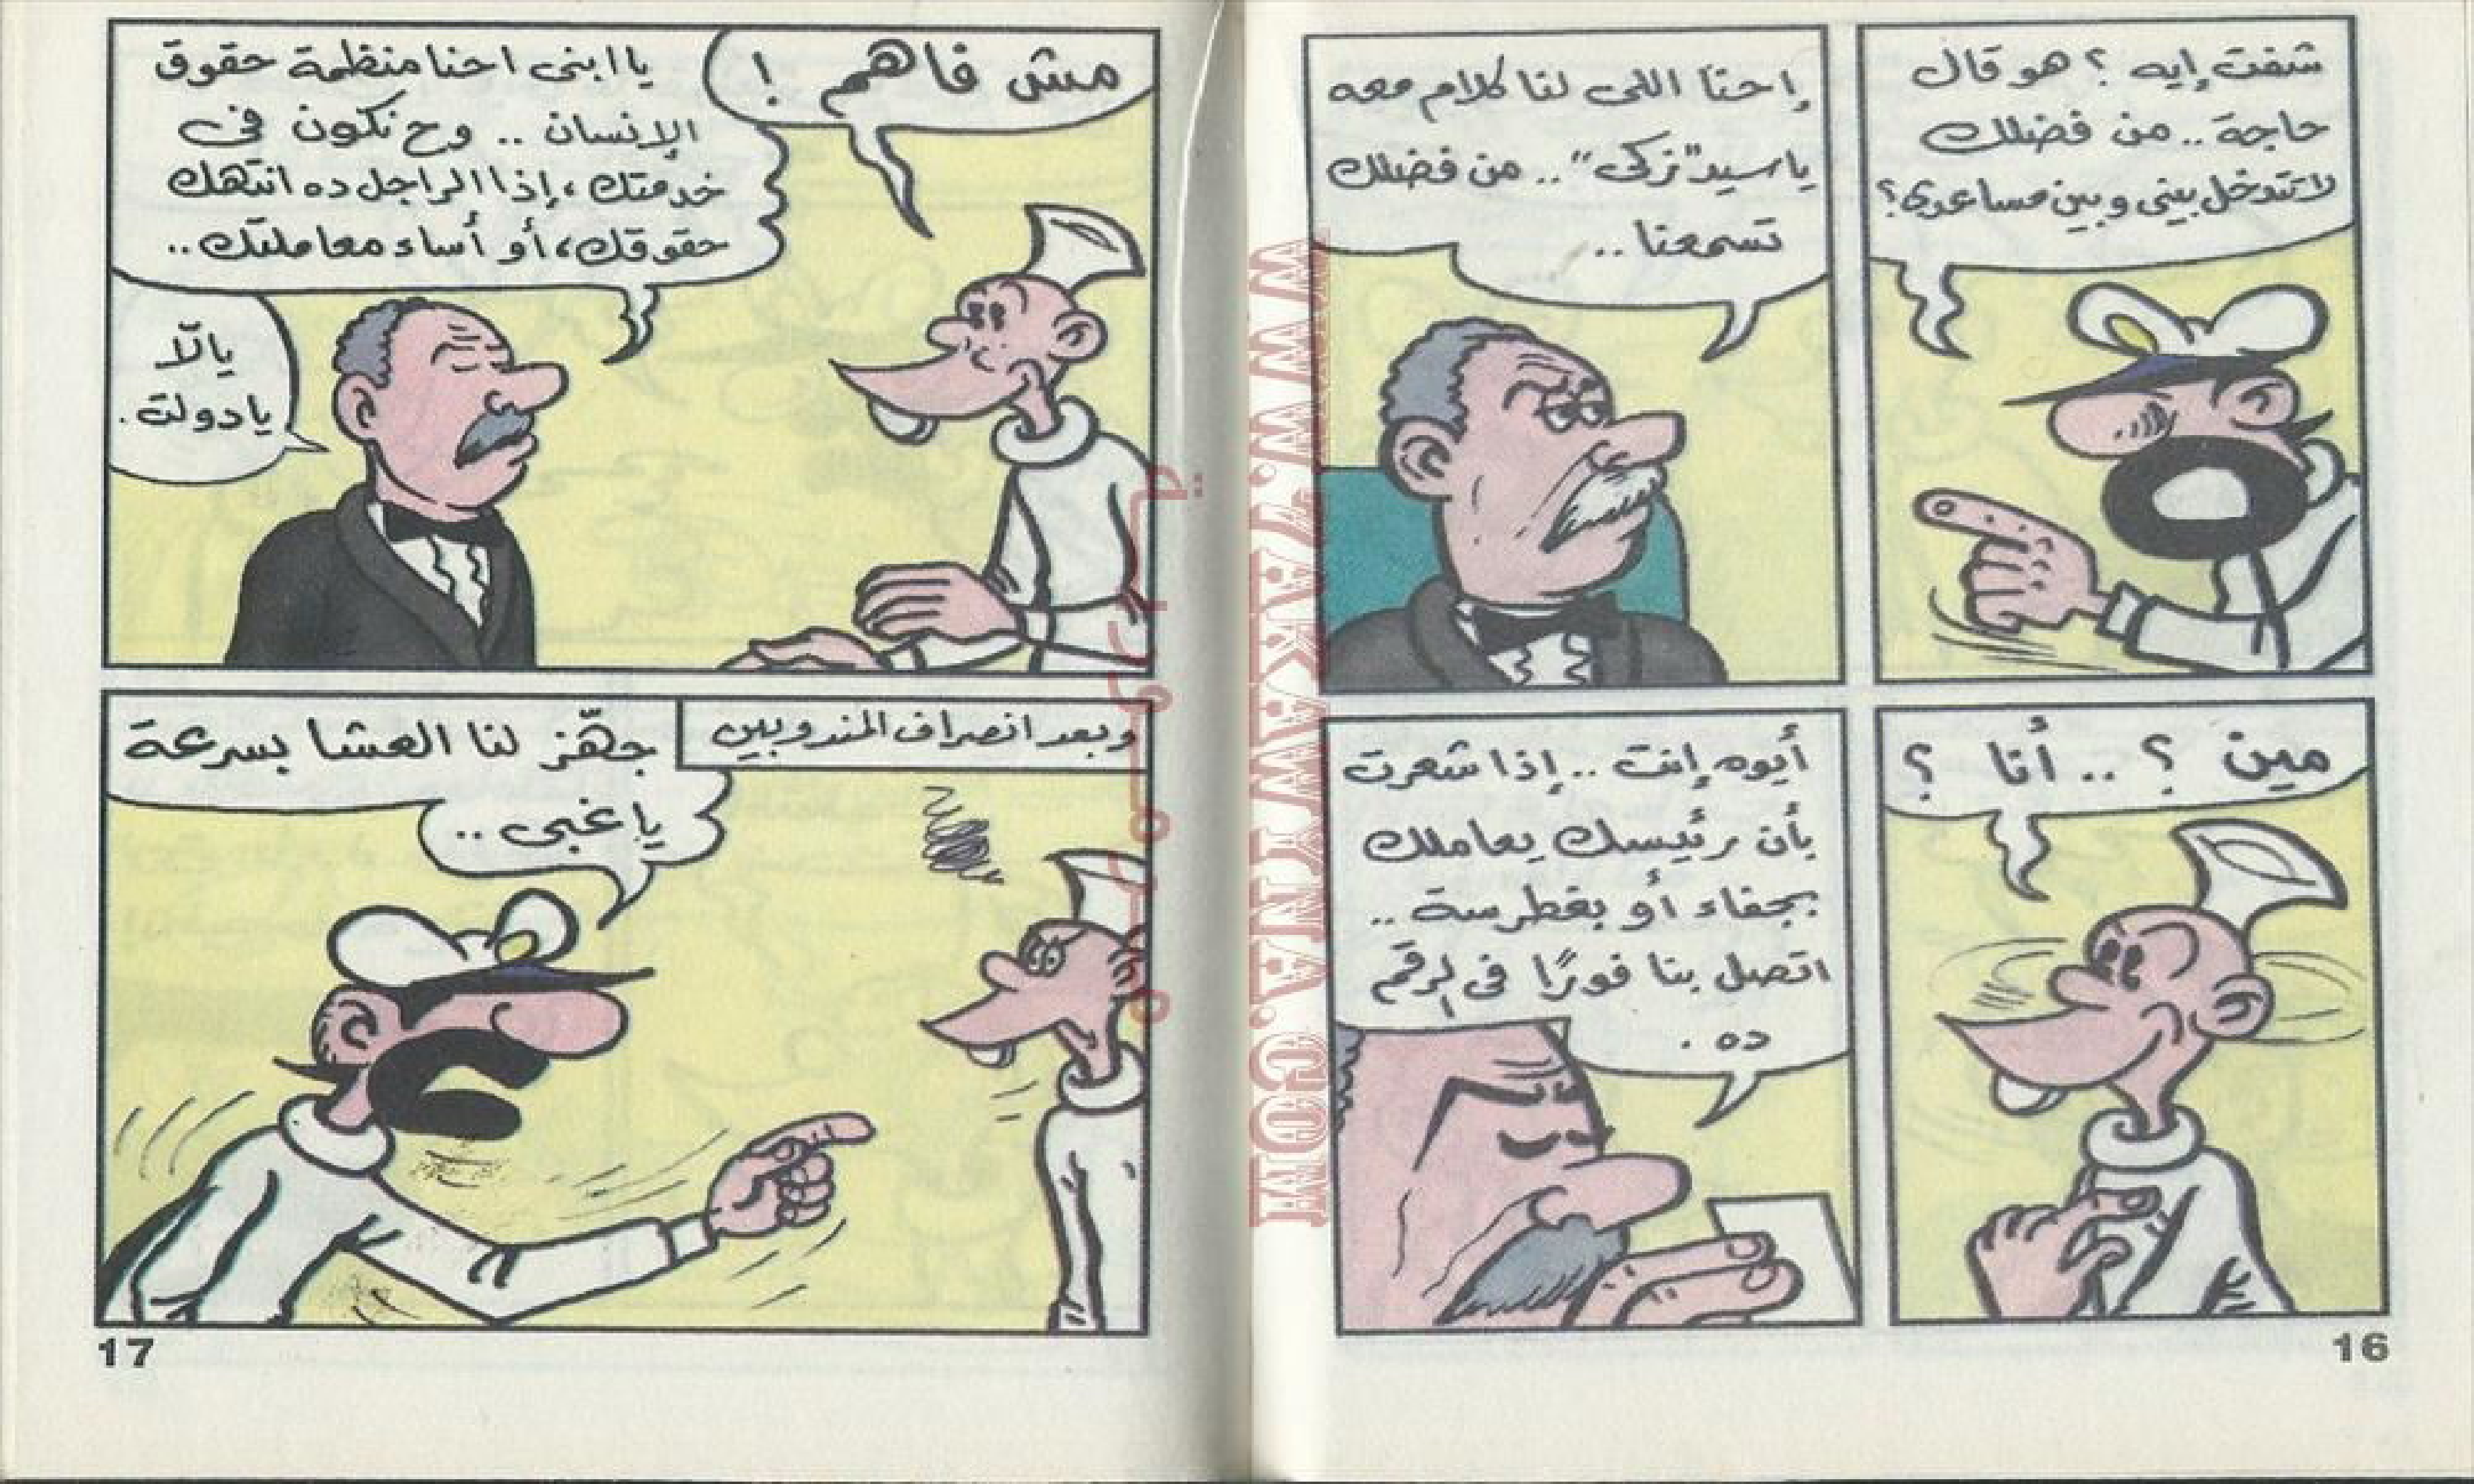 شفت إيه ؟ هو قال
حاجة .. من فضلك
لا تتدخل بينى وبين مساعدى ؟
إحنا اللى لنا كلام معه
يا سيد "زكى" .. من فضلك
تسمعنا ..
مين ؟ .. أنا ؟
أيوه إنت .. إذا شعرت
بأن رئيسك يعاملك
بجفاء أو بغطرسة ..
اتصل بنا فورًا فى الرقم
ده .
16
مش فاهم !
يا ابنى احنا منظمة حقوق
الإنسان .. وح نكون فى
خدمتك ، إذا الراجل ده انتهك
حقوقك ، أو أساء معاملتك ..
يالّا
يا دولت .
وبعد انصراف المندوبين
جهّز لنا العشا بسرعة
يا غبى ..
17